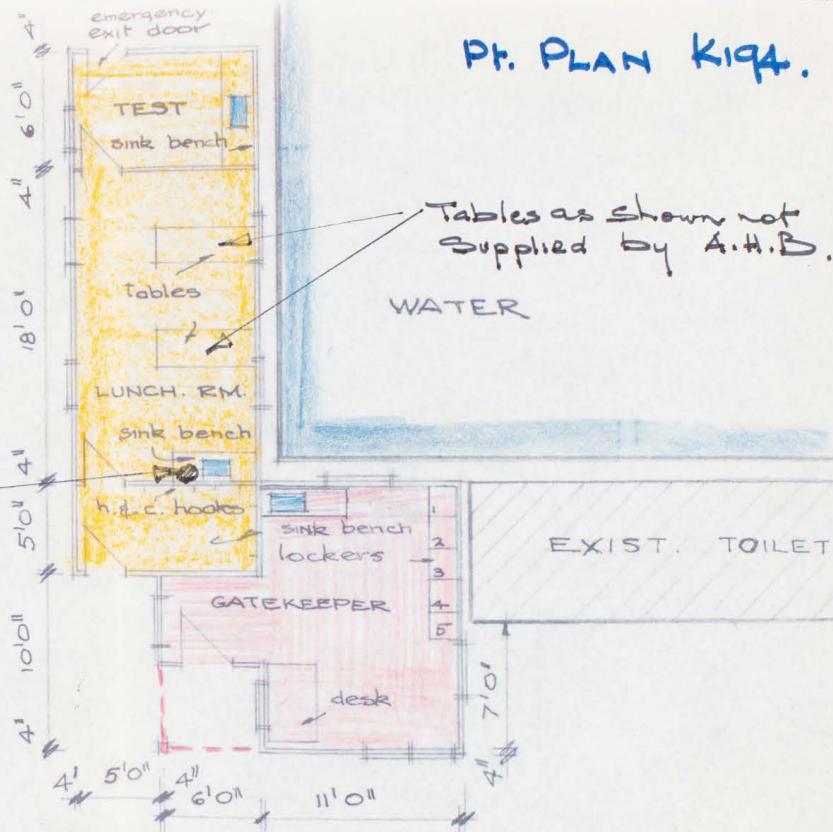 emergency
exit door
Pt. PLAN K194.
4"
6'0"
TEST
sink bench
4"
Tables as shown not
supplied by A.H.B.
Tables
WATER
18'0"
LUNCH. RM.
sink bench
4"
h.& c. hooks
5'0"
sink bench
lockers
1
2
3
4
5
EXIST. TOILET
GATEKEEPER
10'0"
desk
7'0"
4'
4"
4'
5'0"
4"
6'0"
11'0"